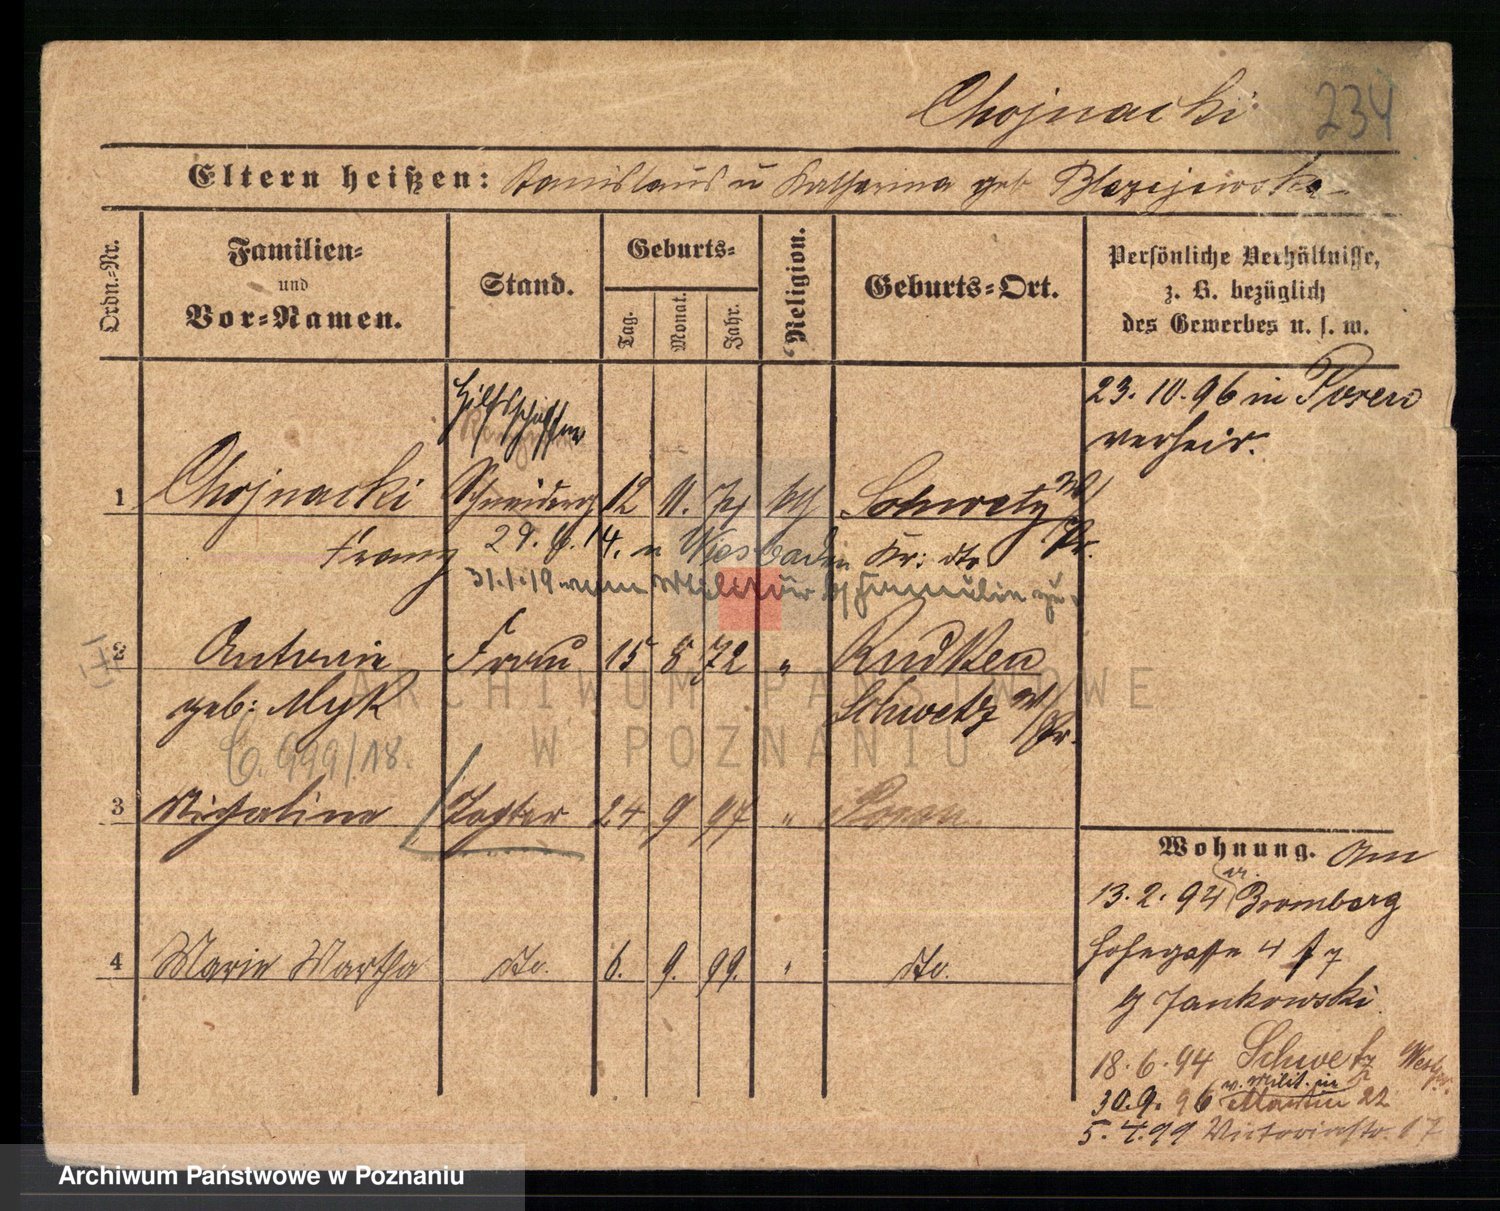 Chojnacki
234
Eltern heißen: Stanislaus u Katharina geb Blazejewska
Ordn.-Nr.
Familien- und Vor-Namen.
Stand.
Geburts-
Tag.
Monat.
Jahr.
Religion.
Geburts-Ort.
Persönliche Verhältnisse,
z. B. bezüglich
des Gewerbes u. s. w.
23.10.96 in Posen
verheir.
Hilfsschaffner
1 Chojnacki Schneiderg 12 11. 71 kth Schwetz W/Pr.
Franz 29. 14. n Wiesbaden Kr: dto
31.1.19 vom Militär
2 Antonie Frau 15 8 72 " Rudken
geb: Myk Schwetz W/Pr.
C. 999/18.
3 Michalina Tochter 24 9 97 " Posen
4 Marie Martha dto. 6. 9. 99. " dto.
Wohnung. Am
13.2.94 v. Bromberg
Hohegasse 4
b/ Jankowski
18.6.94 Schwetz Westpr.
v. Milit. in
30.9.96 Martin 22
5.4.99 Victoriastr. 17
ARCHIWUM PAŃSTWOWE
W POZNANIU
Archiwum Państwowe w Poznaniu